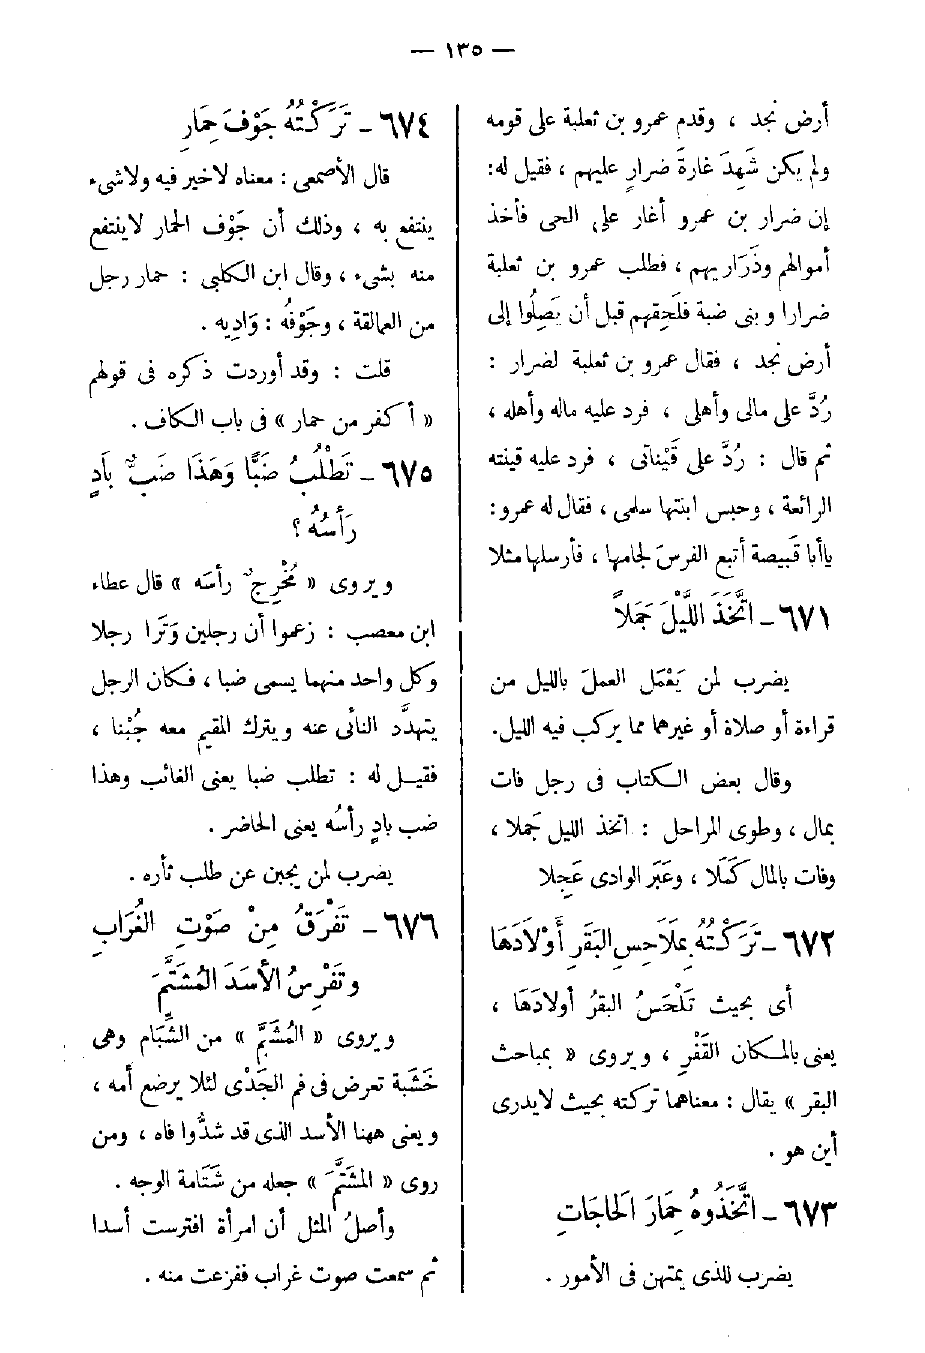 — ١٣٥ —
أرض نجد ، وقدم عمرو بن ثعلبة على قومه
ولم يكن شَهِدَ غارةَ ضرارٍ عليهم ، فقيل له:
إن ضرار بن عمرو أغار على الحى فأخذ
أموالهم وذَرَاريهم ، فطلب عمرو بن ثعلبة
ضرارا وبنى ضبة فلَحِقهم قبل أن يَصِلُوا إلى
أرض نجد ، فقال عمرو بن ثعلبة لضرار :
رُدَّ على مالى وأهلى ، فرد عليه ماله وأهله ،
ثم قال : رُدَّ على قَيْناتى ، فرد عليه قينته
الرائعة ، وحبس ابنتها سلمى ، فقال له عمرو:
ياأبا قَبيصة أتبع الفرسَ لجامها ، فأرسلها مثلا
٦٧١ - اتَّخَذَ اللَّيْلَ جَمَلاً
يضرب لمن يَعْمَل العملَ بالليل من
قراءة أو صلاة أو غيرهما مما يركب فيه الليل.
وقال بعض الكتاب فى رجل فات
بمال ، وطوى المراحل : اتخذ الليل جَملا ،
وفات بالمال كَمَلا ، وعَبَر الوادى عَجِلا
٦٧٢ - تَرَكْتُهُ بِمَلَاحِسِ البَقَرِ أَوْلَادَهَا
أى بحيث تَلْحَسُ البقرُ أولادَهَا ،
يعنى بالمكان القَفْرِ ، ويروى « بمباحث
البقر » يقال : معناهما تركته بحيث لايدرى
أين هو .
٦٧٣ - اتَّخَذُوهُ حِمَارَ الحَاجَاتِ
يضرب للذى يمتهن فى الأمور .
٦٧٤ - تَرَكْتُهُ جَوْفَ حِمَارِ
قال الأصمعى : معناه لاخير فيه ولاشىء
ينتفع به ، وذلك أن جَوْف الحمار لاينتفع
منه بشىء ، وقال ابن الكلبى : حمار رجل
من العمالقة ، وجَوْفُه : وَادِيه .
قلت : وقد أوردت ذكره فى قولهم
« أكفر من حمار » فى باب الكاف .
٦٧٥ - تَطْلُبُ ضَبًّا وَهَذَا ضَبٌّ بَادٍ
رَأْسُهُ ؟
ويروى « مُخْرِجٌ رأسَه » قال عطاء
ابن معصب : زعموا أن رجلين وَتَرَا رجلا
وكل واحد منهما يسمى ضبا ، فكان الرجل
يتهدَّد النائى عنه ويترك المقيم معه جُبْنا ،
فقيل له : تطلب ضبا يعنى الغائب وهذا
ضب بادٍ رأسُه يعنى الحاضر .
يضرب لمن يجبن عن طلب ثأره .
٦٧٦ - تَفْرَقُ مِنْ صَوْتِ الغُرَابِ
وتَفْرِسُ الأَسَدَ المُشَتَّمَ
ويروى « المُشَبَّمَ » من الشِّبَام وهى
خَشَبة تعرض فى فم الجَدْى لئلا يرضع أمه ،
ويعنى ههنا الأسد الذى قد شدُّوا فاه ، ومن
روى « المشَتَّمَ » جعله من شَتَامة الوجه .
وأصلُ المثل أن امرأة افترست أسدا
ثم سمعت صوت غراب ففزعت منه .